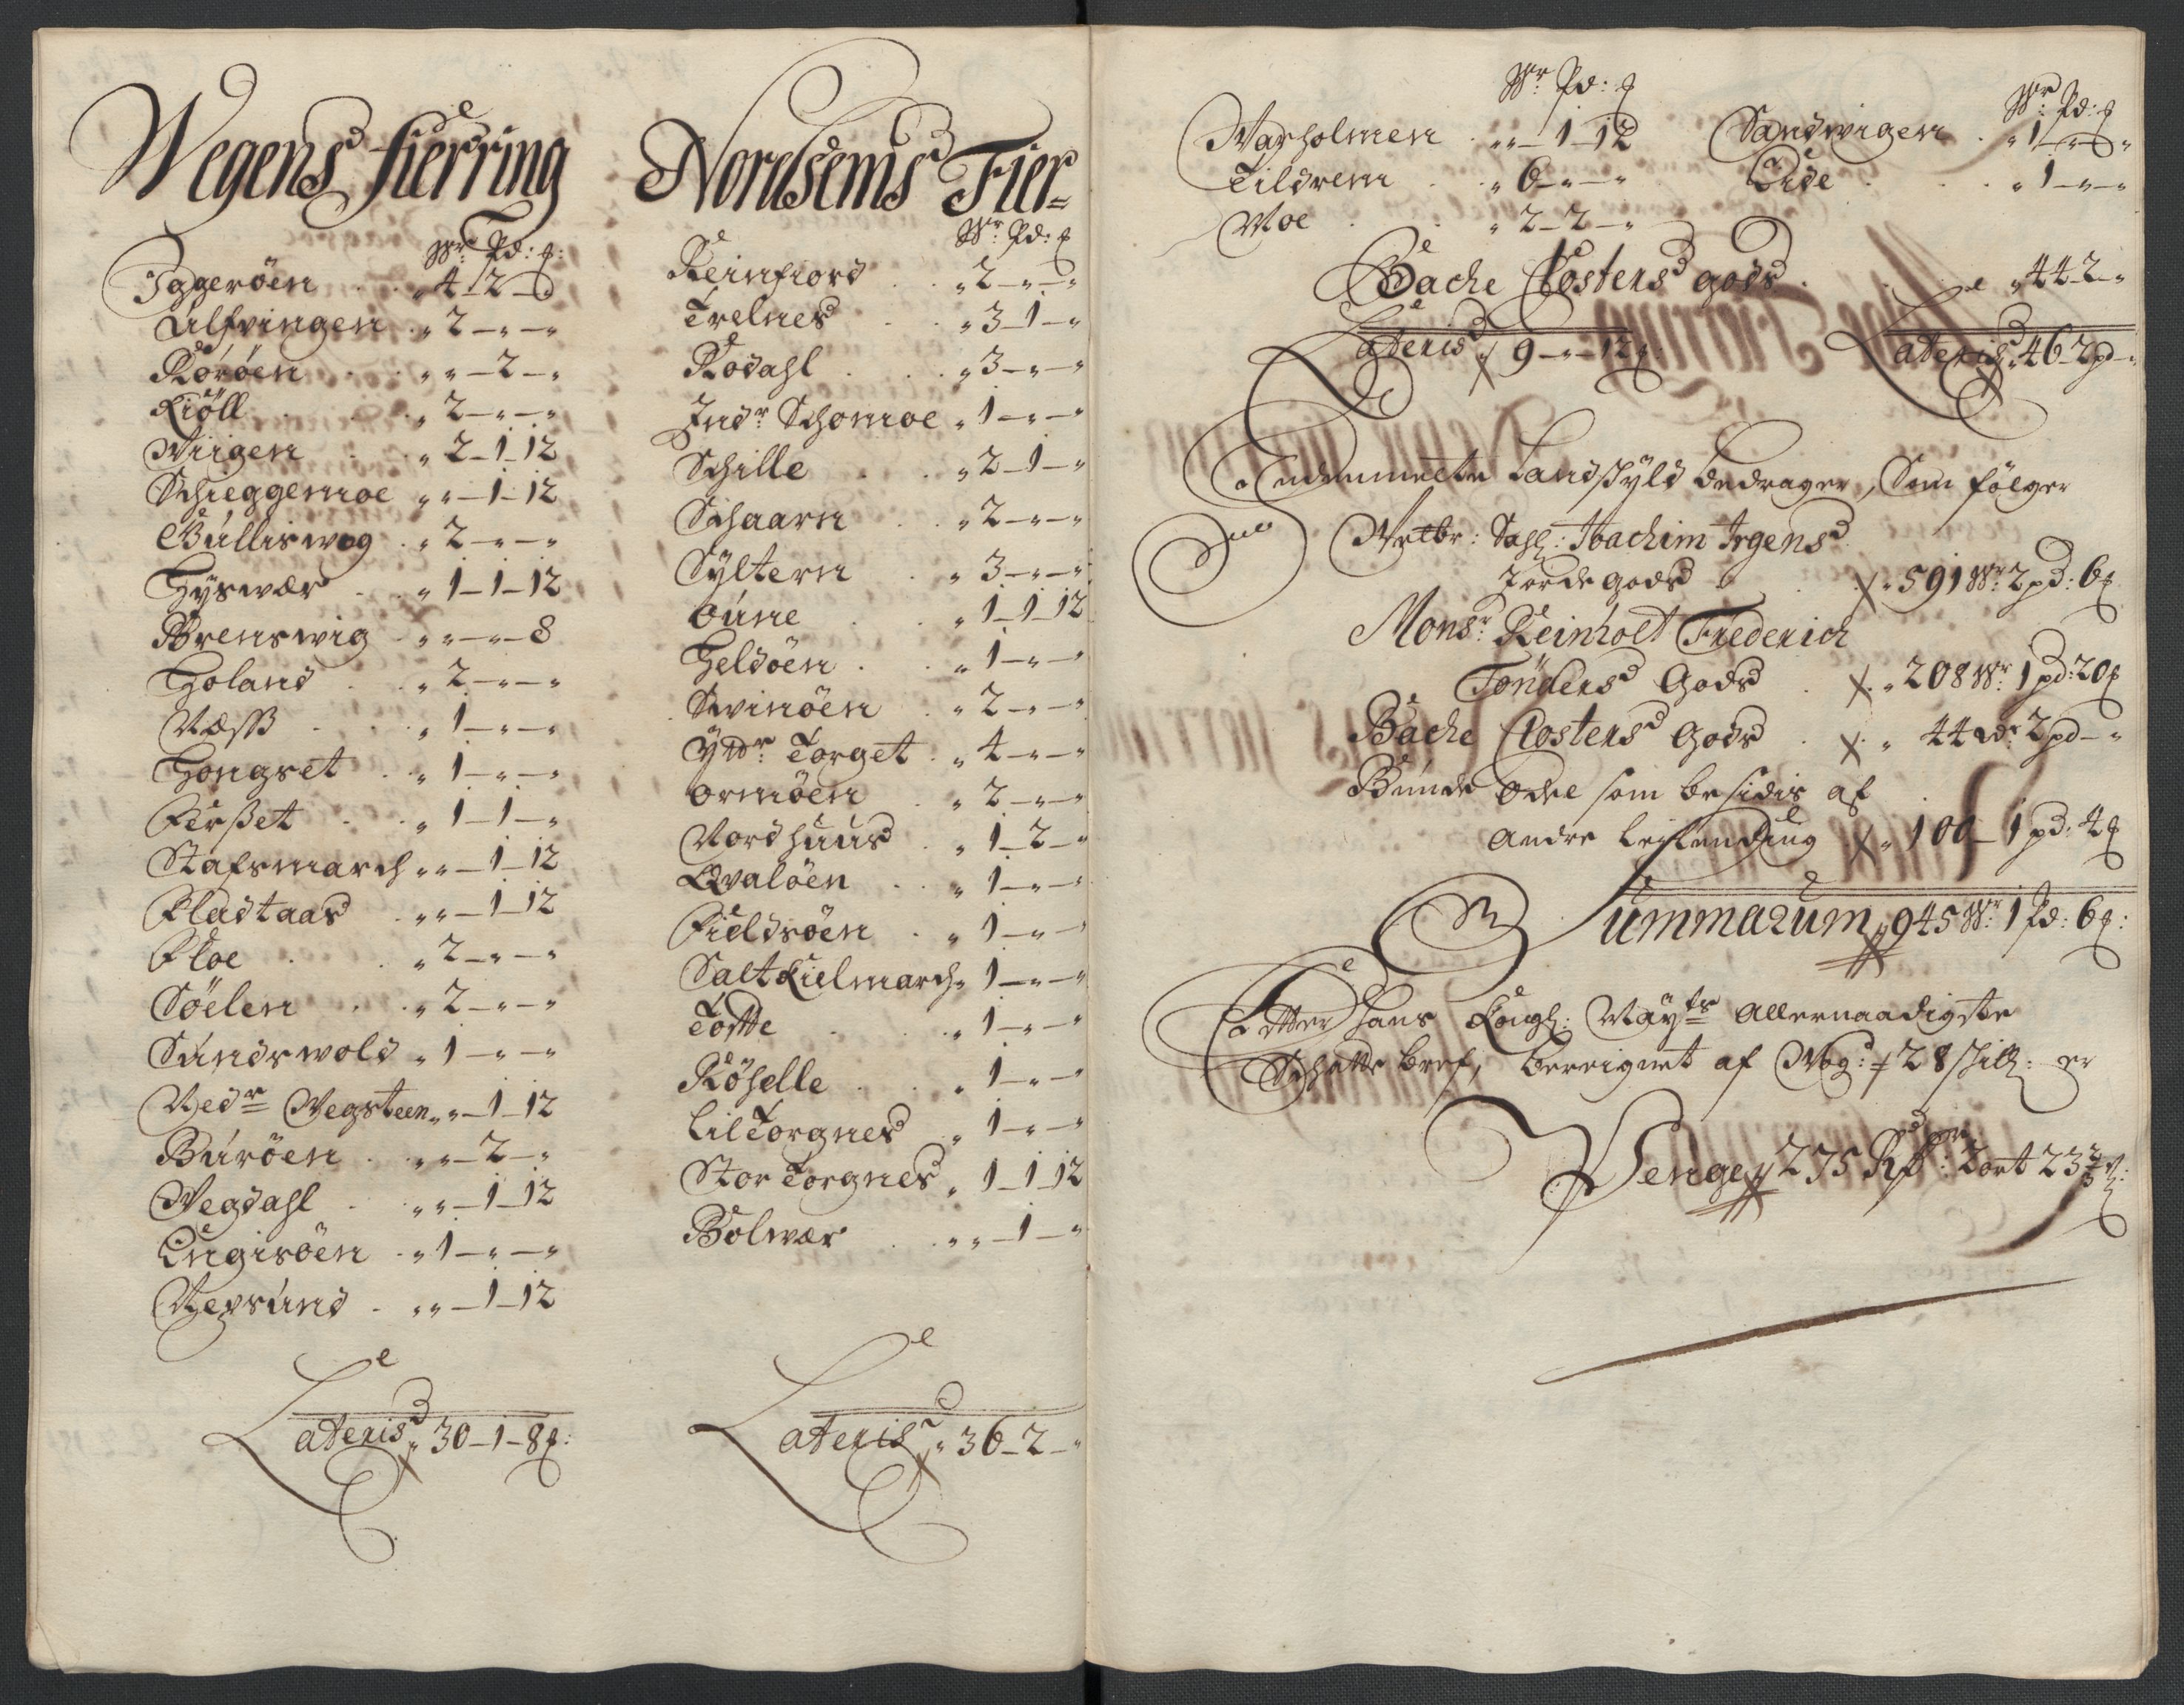 Wegens fierring
Wr: Pd: ꝑ:
Iggeröen " 4 - 2 - "
Ulfvingen " 2 - " - "
Röröen " " - 2 - "
Kiöll " 2 - " - "
Viigen " 2 - 1 - 12
Schieggemoe " " - 1 - 12
Bulliswog " 2 - " - "
Hyswær " 1 - 1 - 12
Brenswig " " - " - 8
Holand " 2 - " - "
Næss " 1 - " - "
Hongset " 1 - " - "
Ferset " 1 - 1 - "
Stafsmarch " " - 1 - 12
Fladtaas " " - 1 - 12
Floe " 2 - " - "
Söelen " 2 - " - "
Sundswold " 1 - " - "
Nedr Vegsteen " " - 1 - 12
Buröen " " - 2 - "
Vegdahl " " - 1 - 12
Engisöen " 1 - " - "
Repsund " " - 1 - 12
Lateris " 30 - 1 - 8 ꝑ:
Nordsems Fier=
Wr: Pd: ꝑ
Reinfiord " 2 - " - "
Trelnes " 3 - 1 - "
Rodahl " 3 - " - "
Indr: Schomoe " 1 - " - "
Schille " 2 - 1 - "
Schaarn " 2 - " - "
Syltern " 3 - " - "
Oune " 1 - 1 - 12
Heldöen " 1 - " - "
Svinöen " 2 - " - "
Ytdr: Torget " 4 - " - "
Ormöen " 2 - " - "
Nordhuus " 1 - 2 - "
Qvalöen " 1 - " - "
Fieldsöen " 1 - " - "
Salt Kielmarch " 1 - " - "
Tofte " 1 - " - "
Röhelle " 1 - " - "
Lil Torgnes " 1 - " - "
Stor Torgnes " 1 - 1 - 12
Bolwær " " - 1 - "
Lateris " 36 - 2 - "
Wr: Pd: ꝑ
Marholmen " " - 1 - 12
Tildrem " 6 - " - "
Moe " 2 - 2 - "
Wr: Pd: ꝑ
Sandwigen " 1 - " - "
Eide " 1 - " - "
Bache Closters gods " 44 - 2 - "
Lateris " 9 - " - 12 ꝑ:
Lateris " 46 - 2 pd - "
Landskyld bedrager, Som fölger
Velbr: Sahl: Joachim Irgens
Jorde gods " 591 Wr: 2 pd: 6 ꝑ
Monsr: Reinholt Frederich
Tönders Gods " 208 Wr: 1 pd: 20 ꝑ
Bache Closters Gods " 44 Wr: 2 pd - "
Bunde Odel som besidis af
andre leilending " 100 - 1 pd: 4 ꝑ
Summarum " 945 Wr: 1 Pd: 6 ꝑ:
Efter Hans Kongl: Mayts Allernaadigste
Schatte bref, beregnet af Vog: 28 skill: er
Penge " 275 Rdr: 2 ort 23 2/3 s: